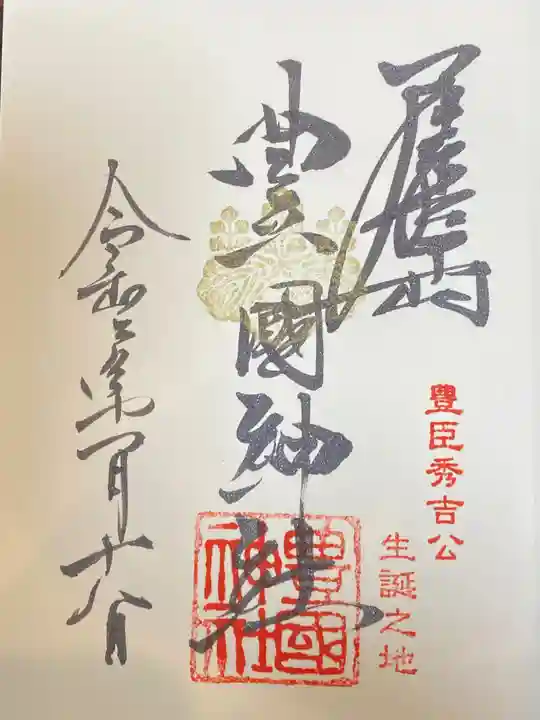 豊國神社
豊臣秀吉公
生誕之地
令和二年一月十八日
豊國
神社